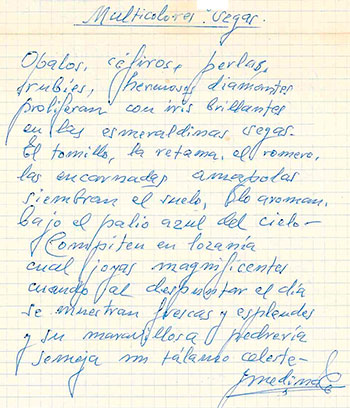 Multicolores vegas.
Opalos, céfiros, perlas,
rubíes, hermosos diamantes
proliferan con iris brillantes
en las esmeraldinas vegas.
El tomillo, la retama, el romero,
las encarnadas amapolas
siembran el suelo, lo aroman,
bajo el palio azul del cielo-
Compiten en lozanía
cual joyas magnificentes
cuando al despuntar el día
se muestran frescas y esplendes
y su maravillosa pedrería
semeja un tálamo celeste-